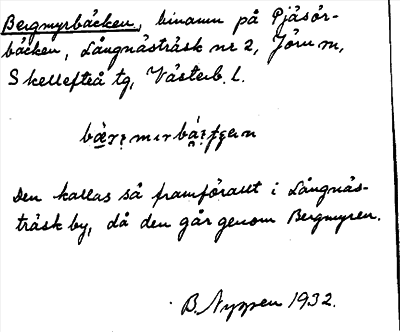 Bergmyrbäcken, binamn på Pjäsör-
bäcken, Långnästräsk nr 2, Jörn sn,
Skellefteå tg, Västerb. l.
Den kallas så framförallt i Långnäs-
träsk by, då den går genom Bergmyren.
B. Nyppen 1932.